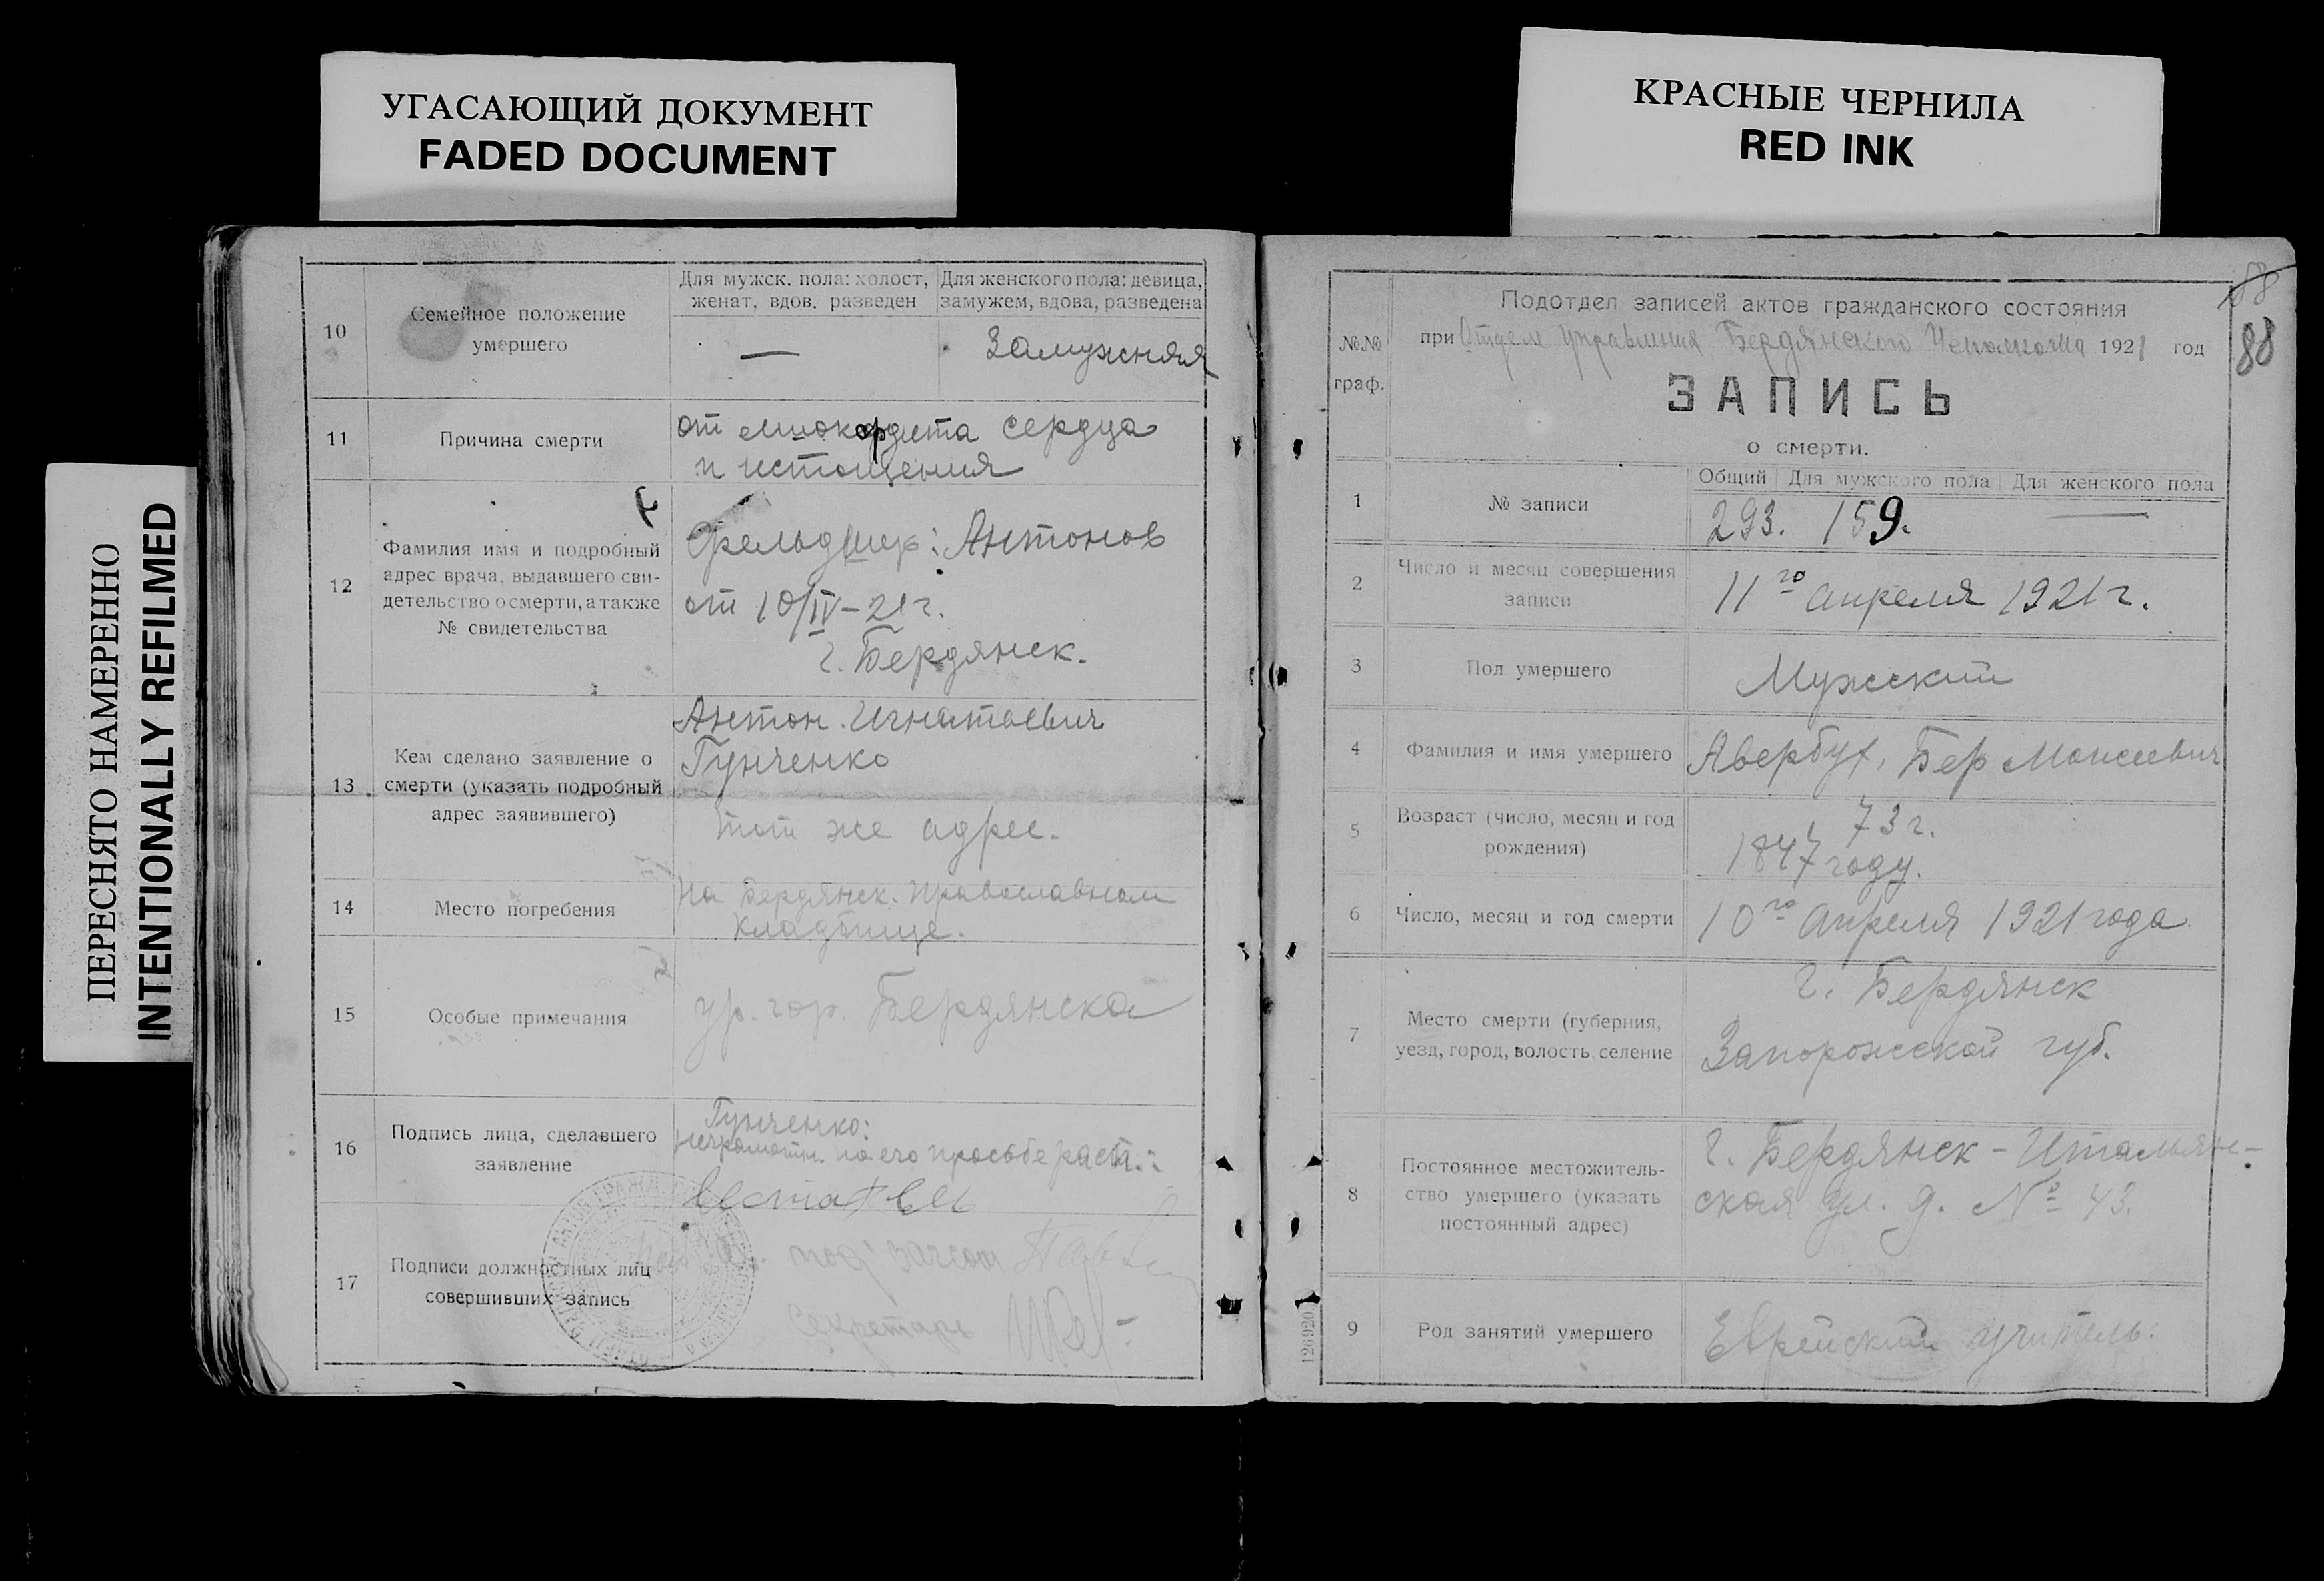 УГАСАЮЩИЙ ДОКУМЕНТ
FADED DOCUMENT
КРАСНЫЕ ЧЕРНИЛА
RED INK
ПЕРЕСНЯТО НАМЕРЕННО
INTENTIONALLY REFILMED
10
Семейное положение
умершего
Для мужск. пола: холост,
женат, вдов. разведен
Для женского пола: девица,
замужем, вдова, разведена
—
Замужняя
11
Причина смерти
от миокардита сердца
и истощения
12
Фамилия имя и подробный
адрес врача, выдавшего сви-
детельство о смерти, а также
№ свидетельства
Фельдшер: Антонов
от 10/IV–21г.
г. Бердянск.
13
Кем сделано заявление о
смерти (указать подробный
адрес заявившего)
Антон Игнатьевич
Гунченко
тот же адрес.
14
Место погребения
На Бердянск. Православном
кладбище.
15
Особые примечания
ур. гор Бердянска
16
Подпись лица, сделавшего
заявление
Гунченко:
неграмотн. по его просьбе расп.:
17
Подписи должностных лиц
совершивших запись
Секретарь
58
88
№№
граф.
Подотдел записей актов гражданского состояния
при Отделе Управления Бердянского Исполкома 1921 год
ЗАПИСЬ
о смерти.
1
№ записи
Общий
Для мужского пола
Для женского пола
293.
159.
—
2
Число и месяц совершения
записи
11го апреля 1921г.
3
Пол умершего
Мужской
4
Фамилия и имя умершего
Авербух, Бер Моисеевич
5
Возраст (число, месяц и год
рождения)
73 г.
1847 году.
6
Число, месяц и год смерти
10го апреля 1921 года
7
Место смерти (губерния,
уезд, город, волость, селение
г. Бердянск
Запорожской губ.
8
Постоянное местожитель-
ство умершего (указать
постоянный адрес)
г. Бердянск – Итальян-
ская ул. д. № 43.
9
Род занятий умершего
Еврейский учитель.
126920